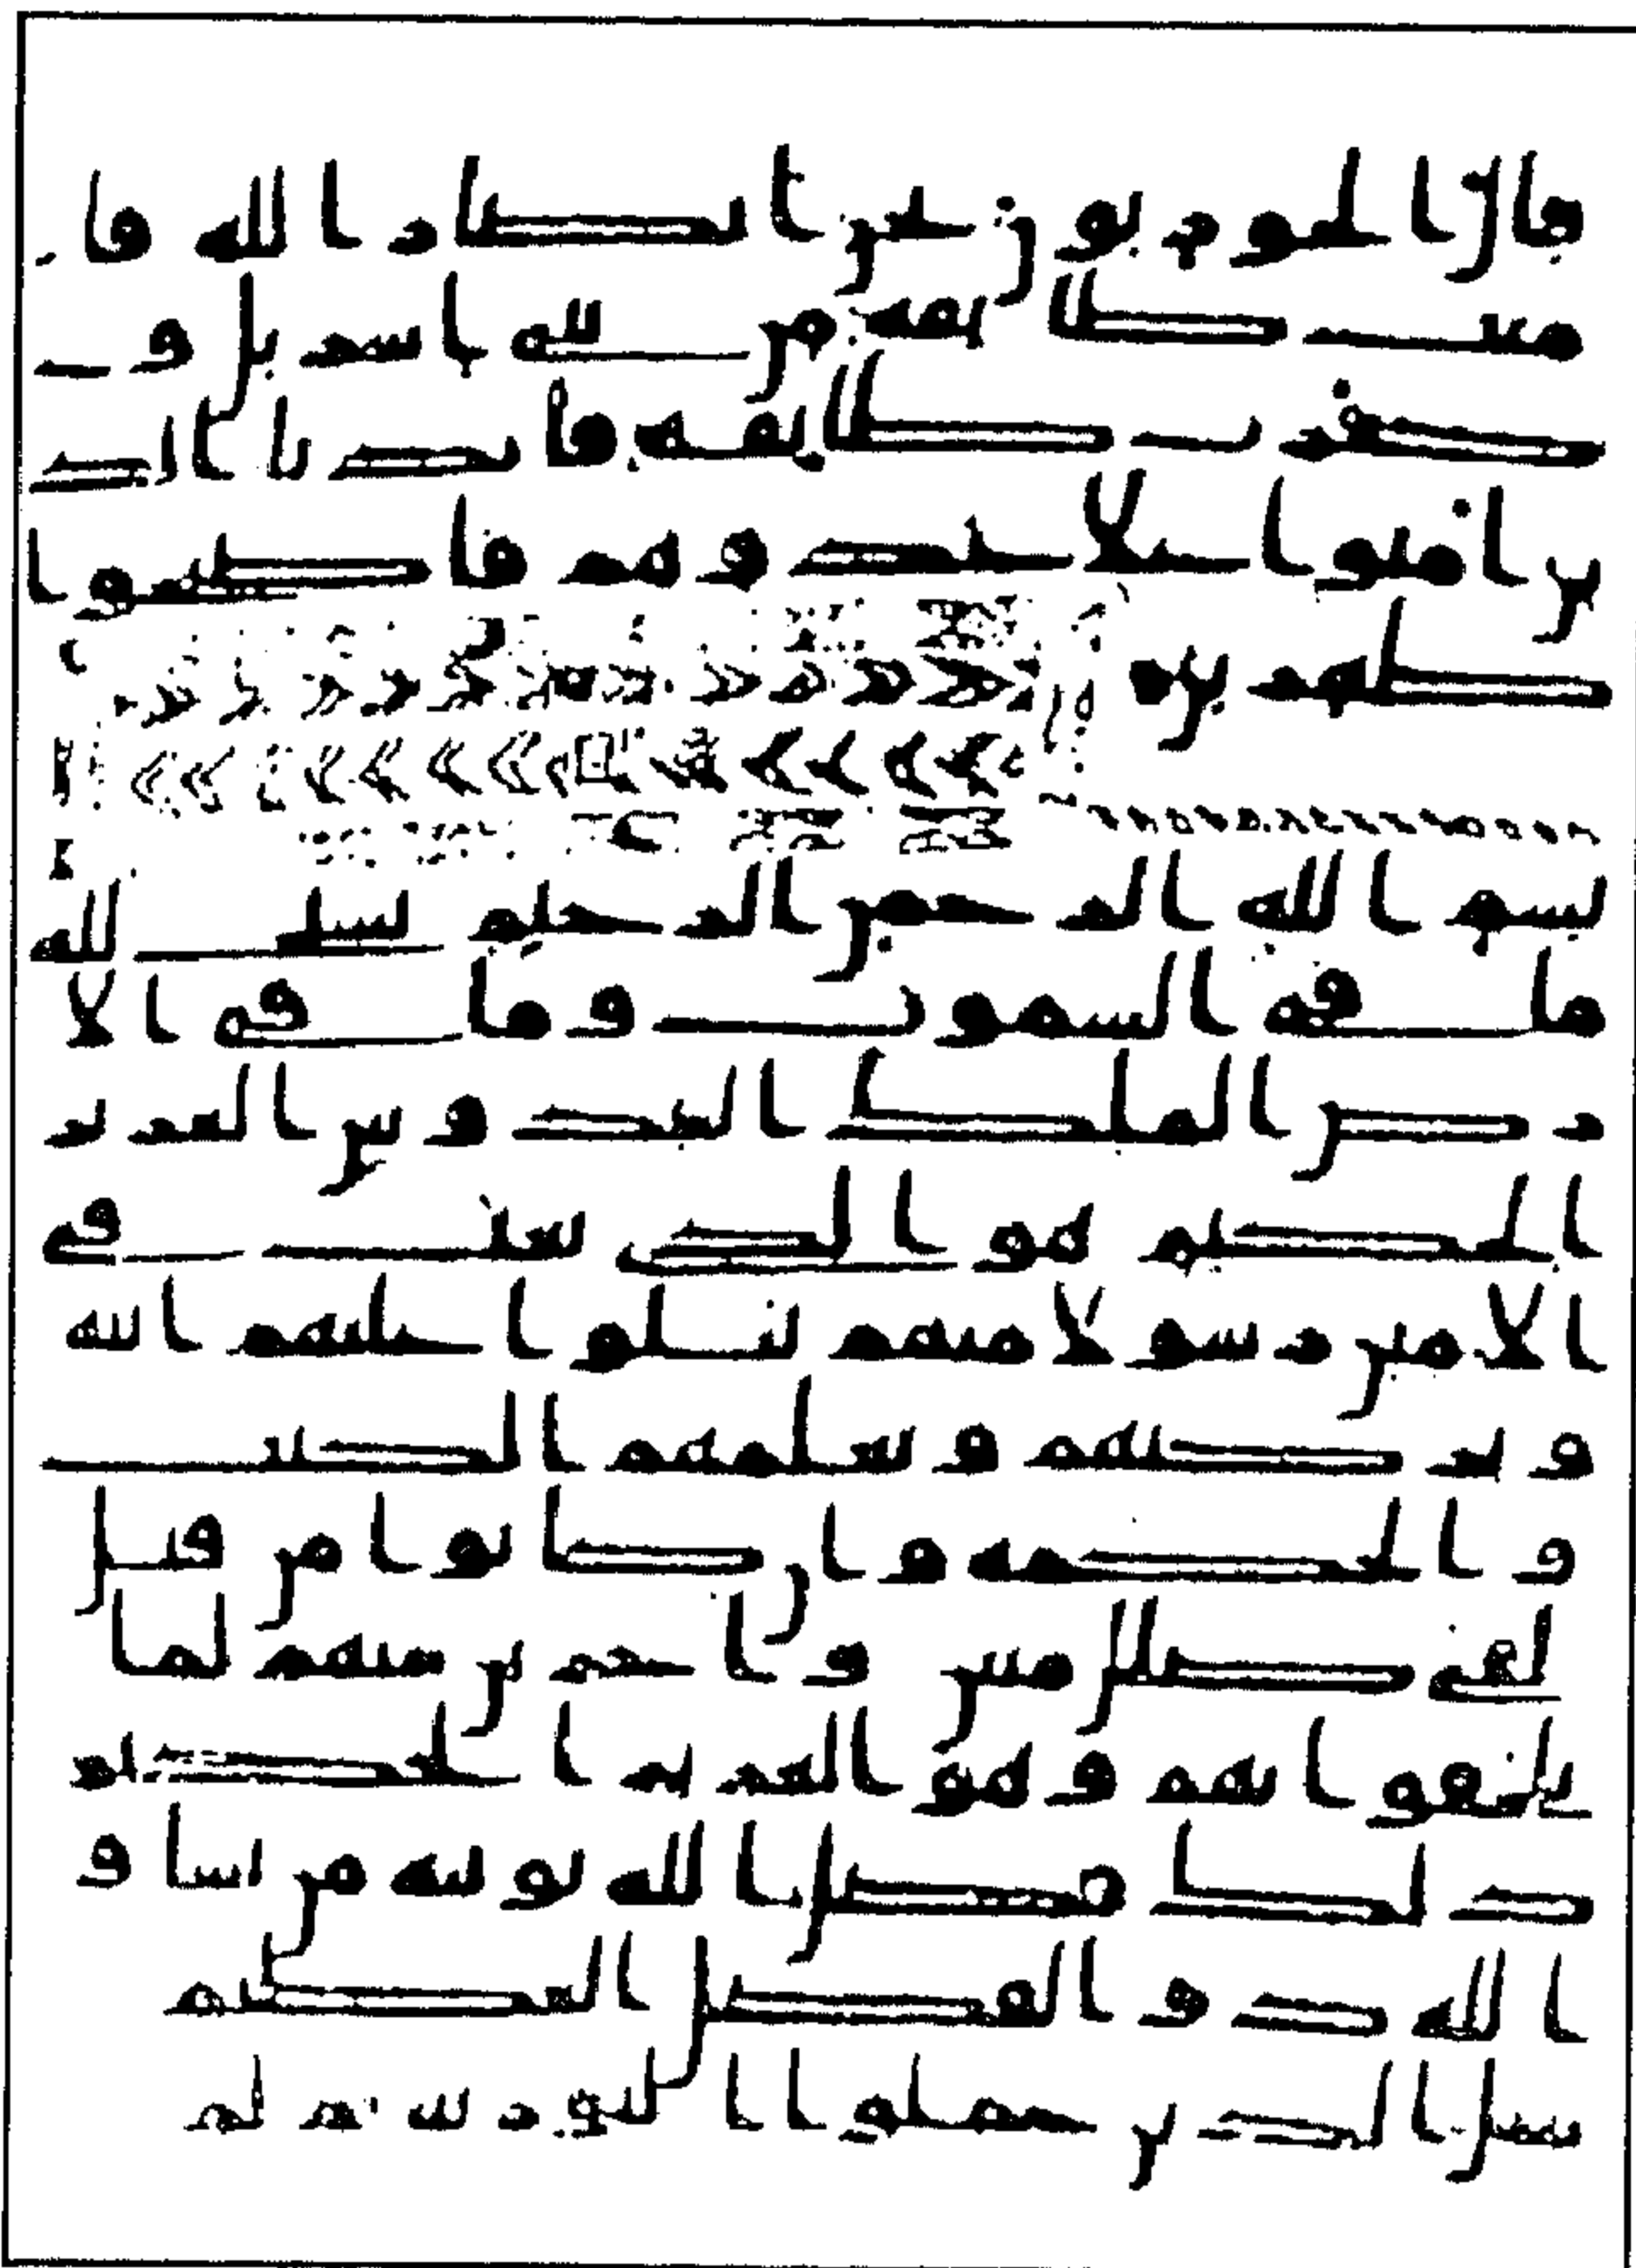 قال الحواريون نحن انصار الله فا
منت طايفه من بنى اسريل و
كفرت طايفه فايدنا الذ
ين امنوا على عدوهم فاصبحوا
ظهرين
بسم الله الرحمن الرحيم يسبح لله
ما فى السموت وما فى الا
رض الملك القدوس العزيز
الحكيم هو الذى بعث فى
الامين رسولا منهم يتلوا عليهم ايته
ويزكيهم ويعلمهم الكتب
والحكمه وان كانوا من قبل
لفى ضلل مبين واخرين منهم لما
يلحقوا بهم وهو العزيز الحكيم
ذلك فضل الله يوتيه من يشا و
الله ذو الفضل العظيم
مثل الذين حملوا التوريه ثم لم